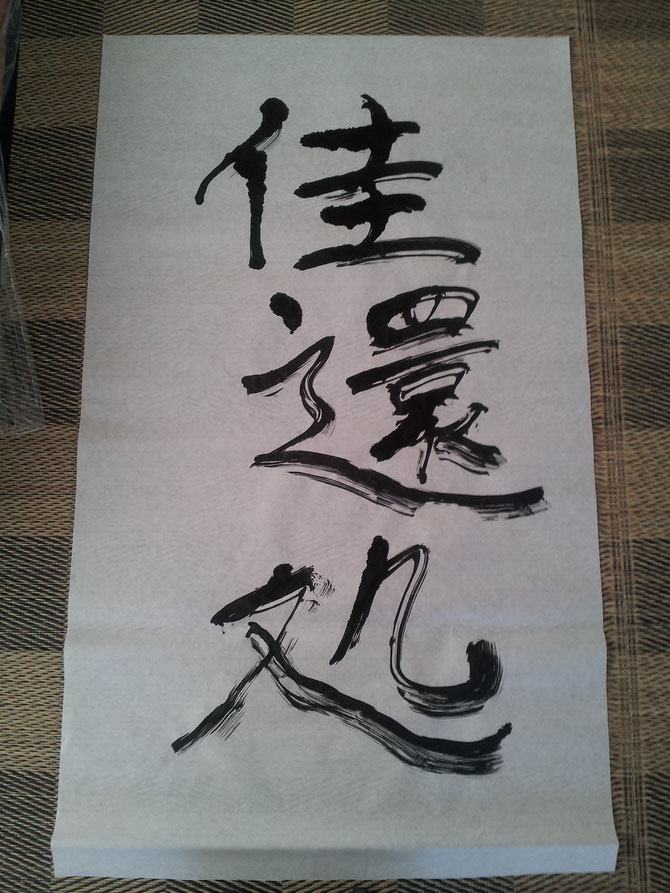 佳還処